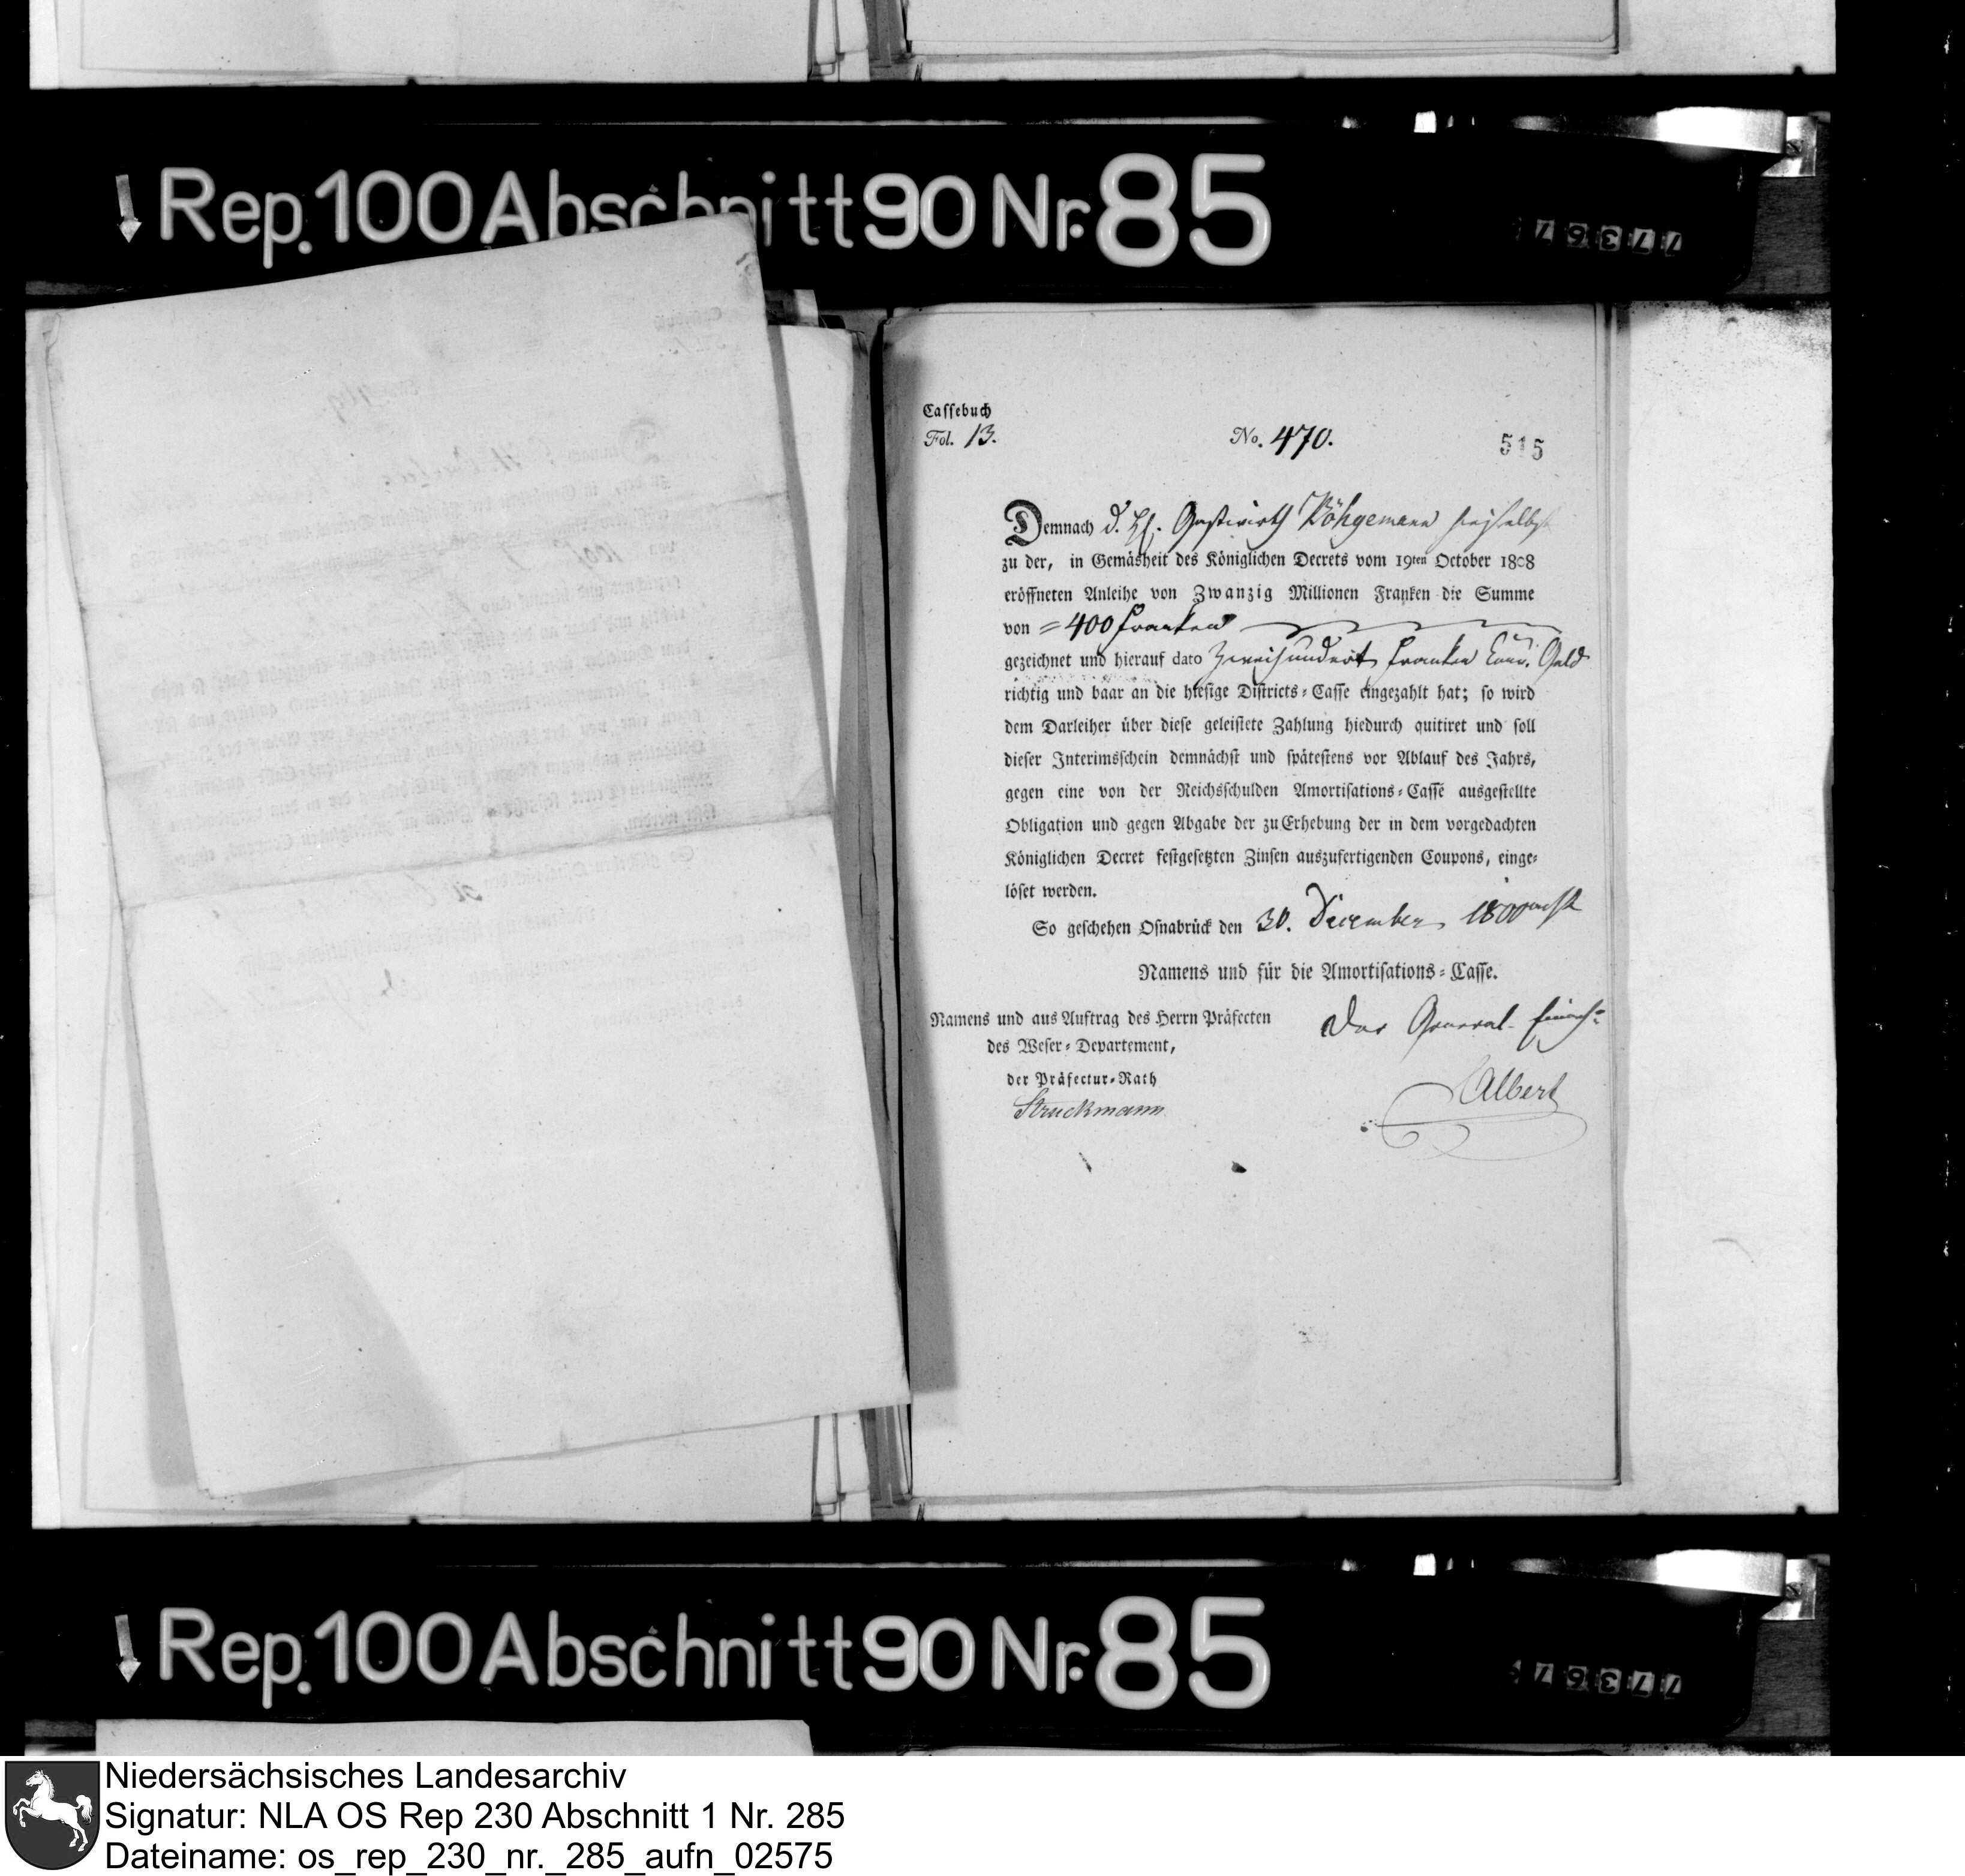 Rep. 100 Abschnitt 90 Nr. 85
Cassebuch
Fol. 13.
No. 470.
515
Demnach d. H. Gastwirth Böhgemann hieselbst
zu der, in Gemäsheit des Königlichen Decrets vom 19ten October 1808
eröffneten Anleihe von Zwanzig Millionen Franken die Summe
von = 400 Franken
gezeichnet und hierauf dato Zweihundert Franken Conv. Geld
richtig und baar an die hiesige Districts-Casse eingezahlt hat; so wird
dem Darleiher über diese geleistete Zahlung hiedurch quitiret und soll
dieser Interimsschein demnächst und spätestens vor Ablauf des Jahrs,
gegen eine von der Reichsschulden Amortisations-Casse ausgestellte
Obligation und gegen Abgabe der zu Erhebung der in dem vorgedachten
Königlichen Decret festgesetzten Zinsen auszufertigenden Coupons, einge-
löset werden.
So geschehen Osnabrück den 30. December 1800 acht
Namens und für die Amortisations-Casse.
Namens und aus Auftrag des Herrn Präfecten
des Weser-Departement,
der Präfectur-Rath
Struckmann
Der General-
Albert
Rep. 100 Abschnitt 90 Nr. 85
Niedersächsisches Landesarchiv
Signatur: NLA OS Rep 230 Abschnitt 1 Nr. 285
Dateiname: os_rep_230_nr._285_aufn_02575